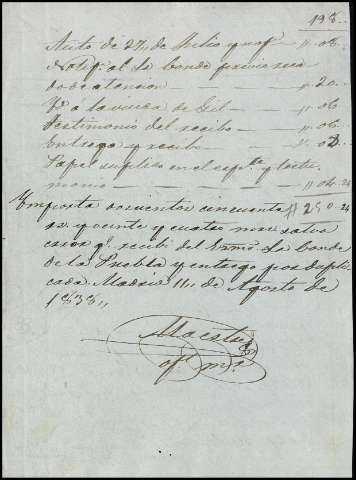 193.
Auto de 27, de Julio y not — „ 08.
Notif. al Sr Conde previo rec
do de atencion — „ 20.
Yd a la viuda de Gil — „ 06
Testimonio del recibo — „ 06.
Entrega y recibo — „ 0
Papel suplido en el espte y testi
monio — „ 24
Ymporta doscientos cincuenta # 250.24
rs. y veinte y cuatro mrs salvo
error qe recibi del Exmo Sr Conde
de la Puebla y entrego por dupli
cada Madrid 11, de Agosto de
1838„
Maestre